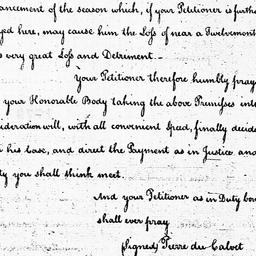 ancement of the season which, if your Petitioner is further
yed here, may cause him the Loſs of near a Twelvemonth
s very great Loſs and Detriment.—
Your Petitioner therefore humbly pray
your Honorable Body taking the above Premiſses int
sideration will, with all convenient Speed, finally decide
his Case, and direct the Payment as in Justice and
ty you shall think meet.
And your Petitioner as in Duty bou
shall ever pray
(Signed) Pierre du Calvet